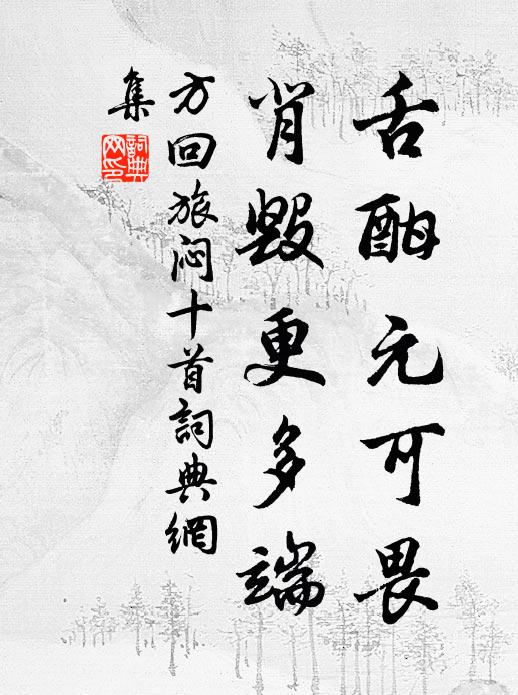 舌酣元可畏
肖毀更多端
方回旅闷十首詞典網
集
詞典
网印